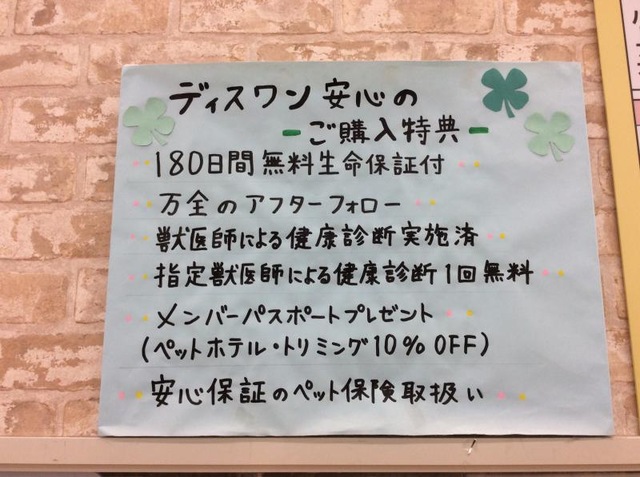 ディスワン安心の
ーご購入特典ー
180日間無料生命保証付
万全のアフターフォロー
獣医師による健康診断実施済
指定獣医師による健康診断1回無料
メンバーパスポートプレゼント
(ペットホテル・トリミング10%OFF)
安心保証のペット保険取扱い